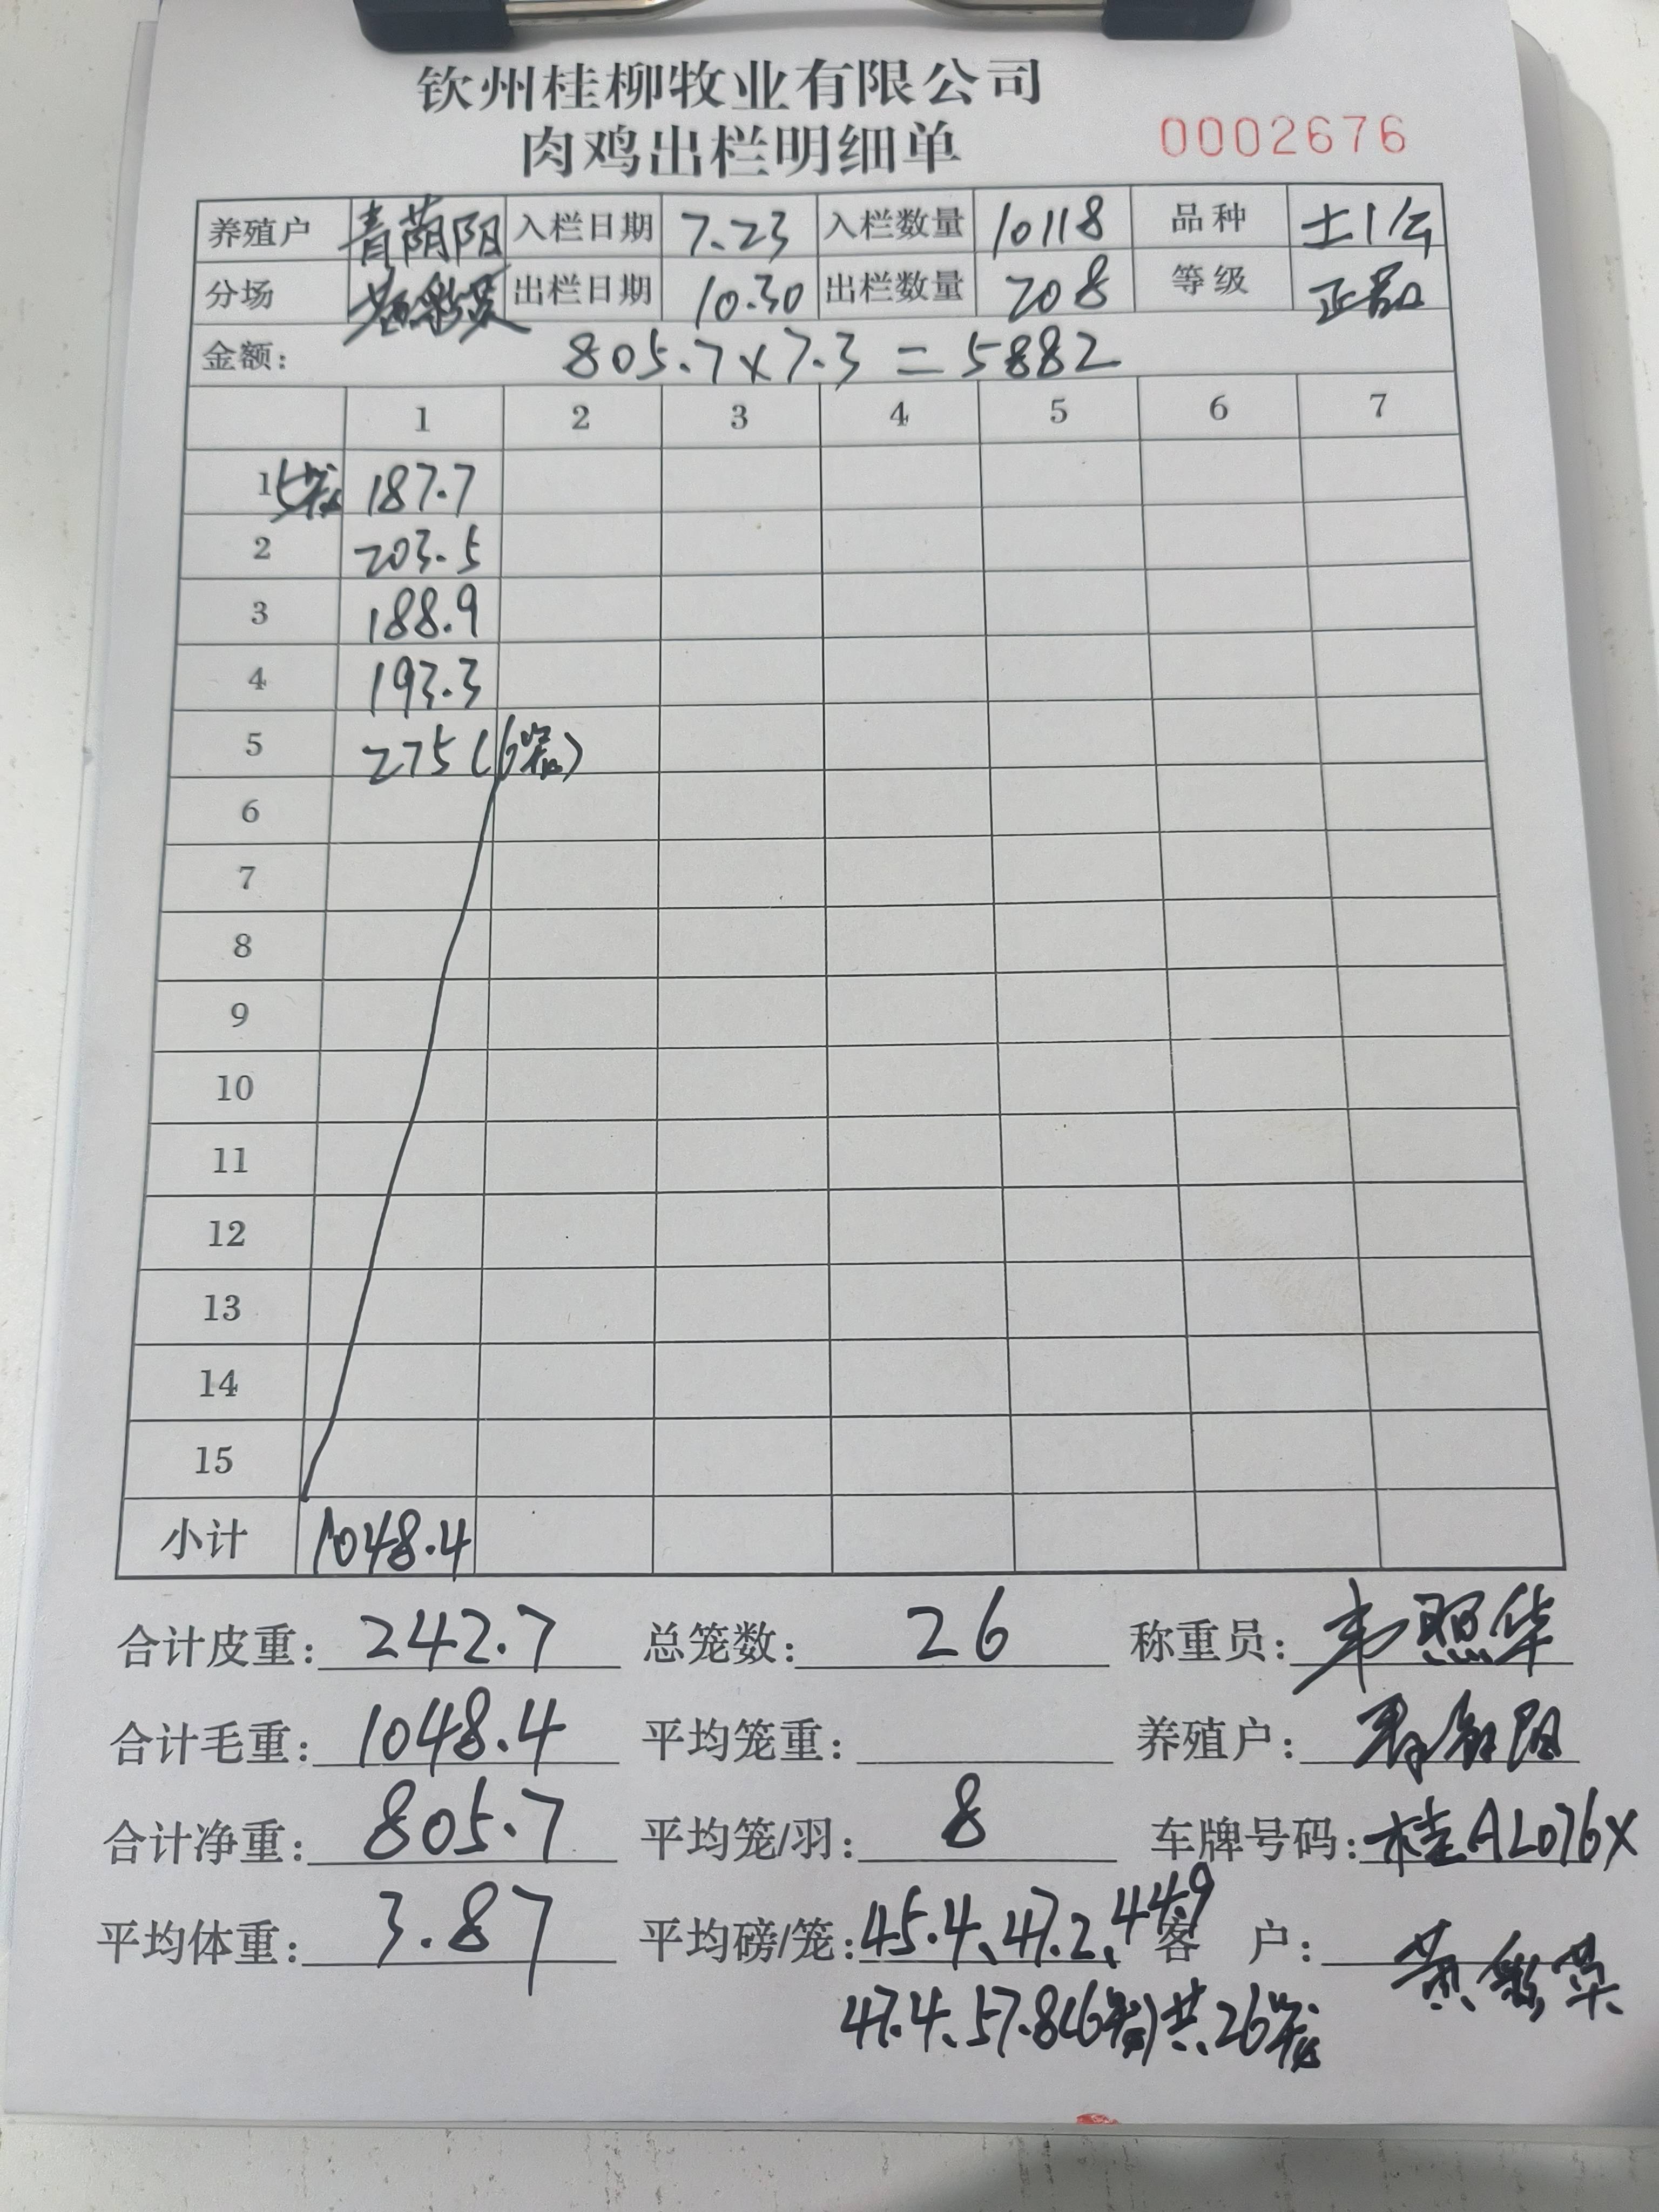 钦州桂柳牧业有限公司
肉鸡出栏明细单 0002676
养殖户 青荫阳 入栏日期 7.23 入栏数量 10118 品种 土1公
分场 出栏日期 10.30 出栏数量 208 等级 正品
金额: 805.7×7.3=5882
1 2 3 4 5 6 7
1 5笼 187.7
2 203.5
3 188.9
4 193.3
5 275(6笼)
6
7
8
9
10
11
12
13
14
15
小计 1048.4
合计皮重: 242.7 总笼数: 26 称重员: 韦照华
合计毛重: 1048.4 平均笼重: 养殖户:
合计净重: 805.7 平均笼/羽: 8 车牌号码: 桂AL076X
平均体重: 3.87 平均磅/笼: 45.4、47.2、44.9 客户: 黄
47.4、57.8(6笼)共26笼